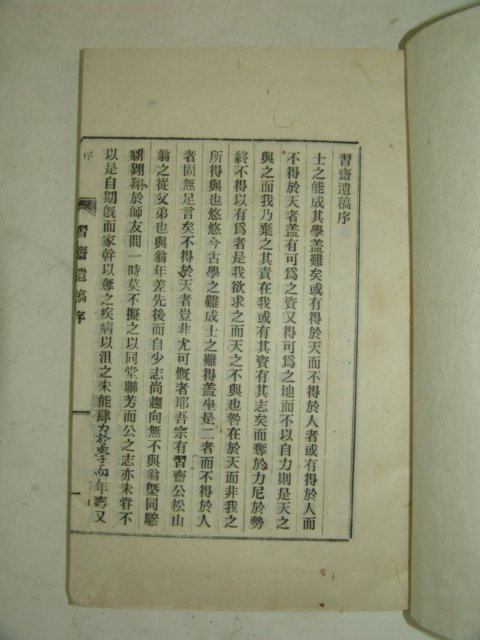 習齋遺稿序
士之能成其學盖難矣或有得於天而不得於人者或有得於人而
不得於天者盖有可爲之資又得可爲之地而不以自力則是天之
與之而我乃棄之其責在我或有其資有其志矣而奪於力尼於勢
終不得以有爲者是我欲求之而天之不與也咎在於天而非我之
所得與也悠悠今古學之難成士之難得盖坐是二者而不得於人
者固無足言矣不得於天者豈非尤可慨者耶吾宗有習齋公松山
翁之從父弟也與翁年差先後而自少志尚趨向無不與翁槩同
騈翺翔於師友間一時莫不擬之以同堂聯芳而公之志亦未甞不
以是自期旣而家幹以奪之疾病以沮之未能肆力於學而年壽又
序
習齋遺稿序
一